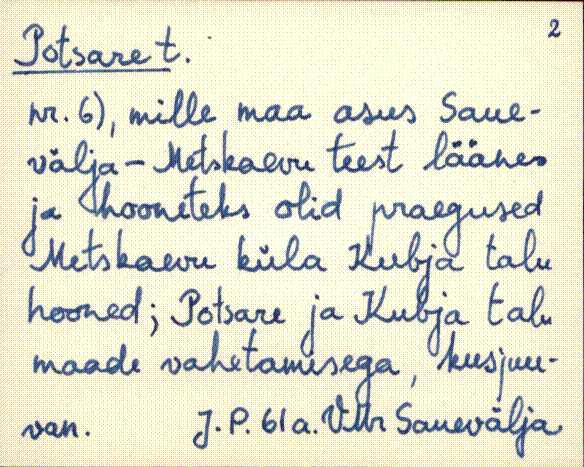 2
Potsare t.
nr. 6), mille maa asus Saue-
välja - Metskaevu teest läänes
ja hooneteks olid praegused
Metskaevu küla Kubja talu
hooned; Potsare ja Kubja talu
maade vahetamisega, kusjuu-
van. J. P. 61 a. VMr Sauevälja